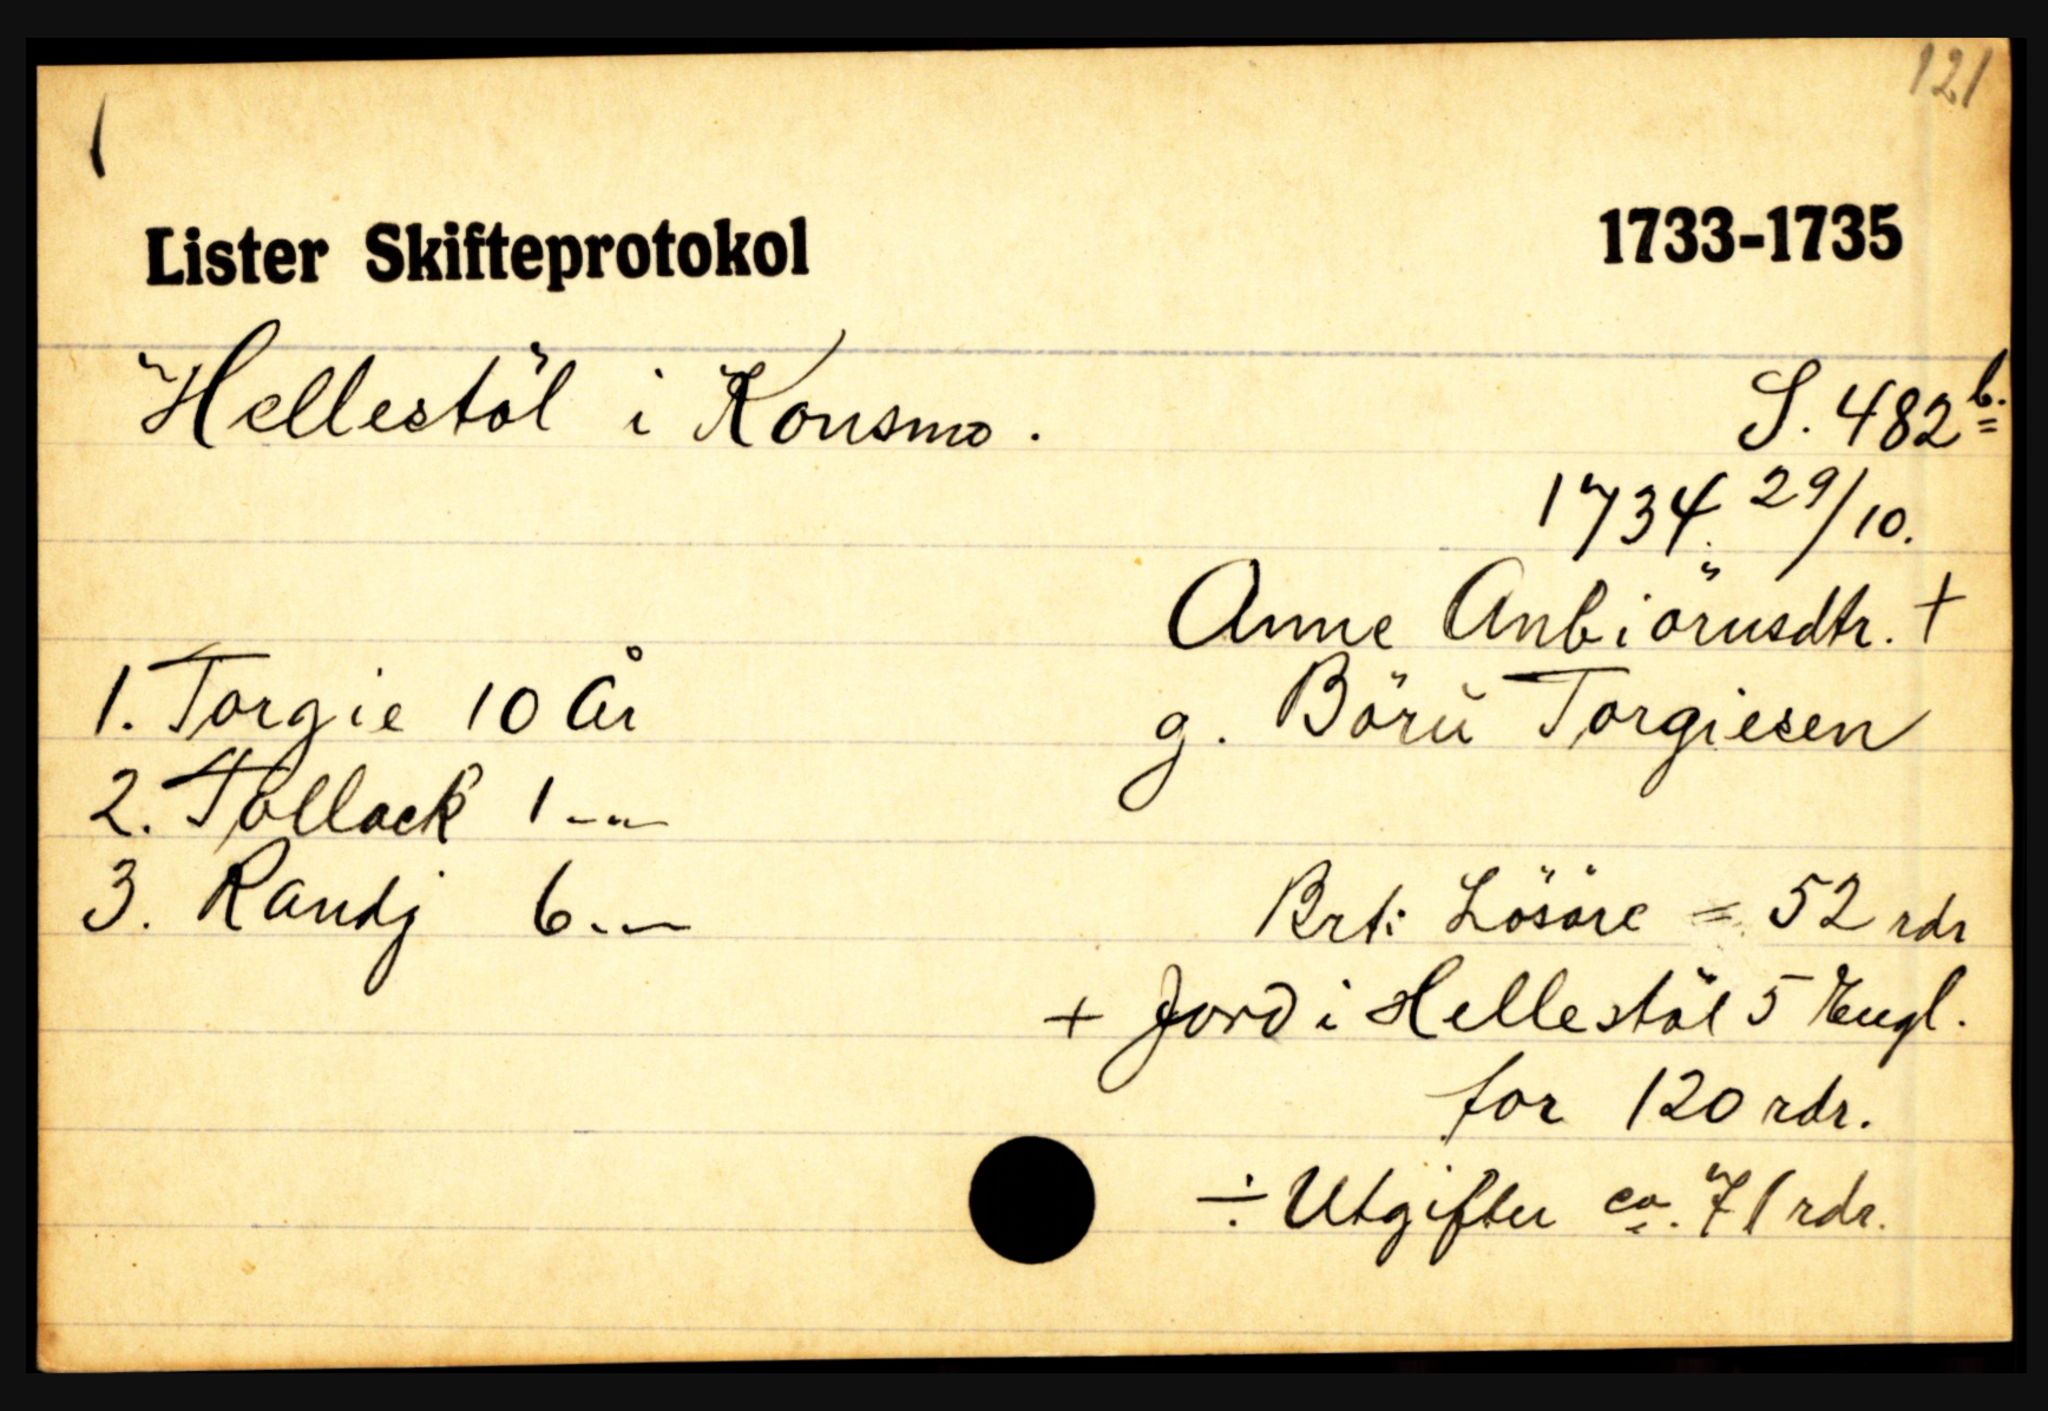 121
Lister Skifteprotokol 1733-1735
Hellestöl i Konsmo. S. 482b.
1734. 29/10.
Anne Anbiörnsdtr. +
1. Torgie 10 År g. Börü Torgiesen
2. Tollack 1 -"-
3. Randj 6 -"- Brt: Lösöre = 52 rdr
+ Jord i Hellestöl 5 Engl.
for 120 rdr.
÷ Utgifter ca. 71 rdr.